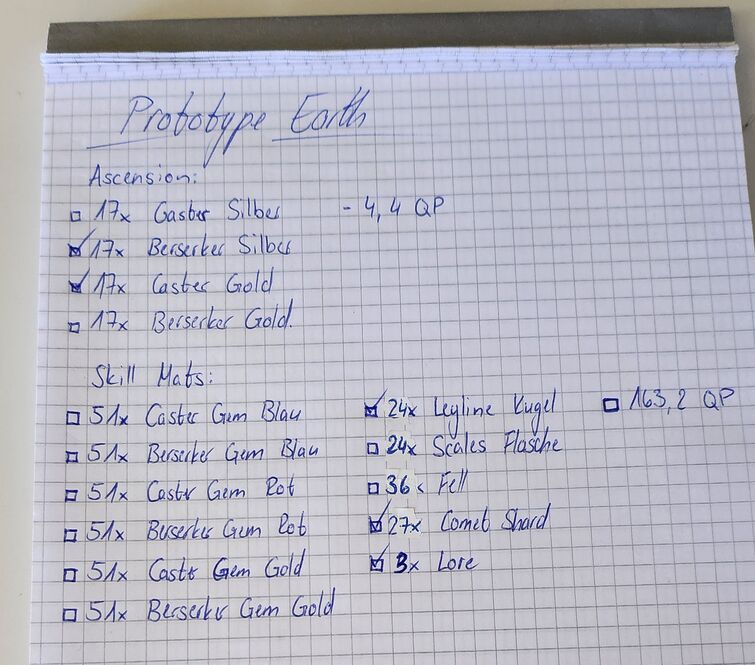 Prototype Earth
Ascension:
17x Caster Silber - 4,4 QP
17x Berserker Silber
17x Caster Gold
17x Berserker Gold.
Skill Mats:
51x Caster Gem Blau
51x Berserker Gem Blau
51x Caster Gem Rot
51x Berserker Gem Rot
51x Caster Gem Gold
51x Berserker Gem Gold
24x Leyline Kugel
24x Scales Flasche
36x Fell
27x Comet Shard
3x Lore
163,2 QP